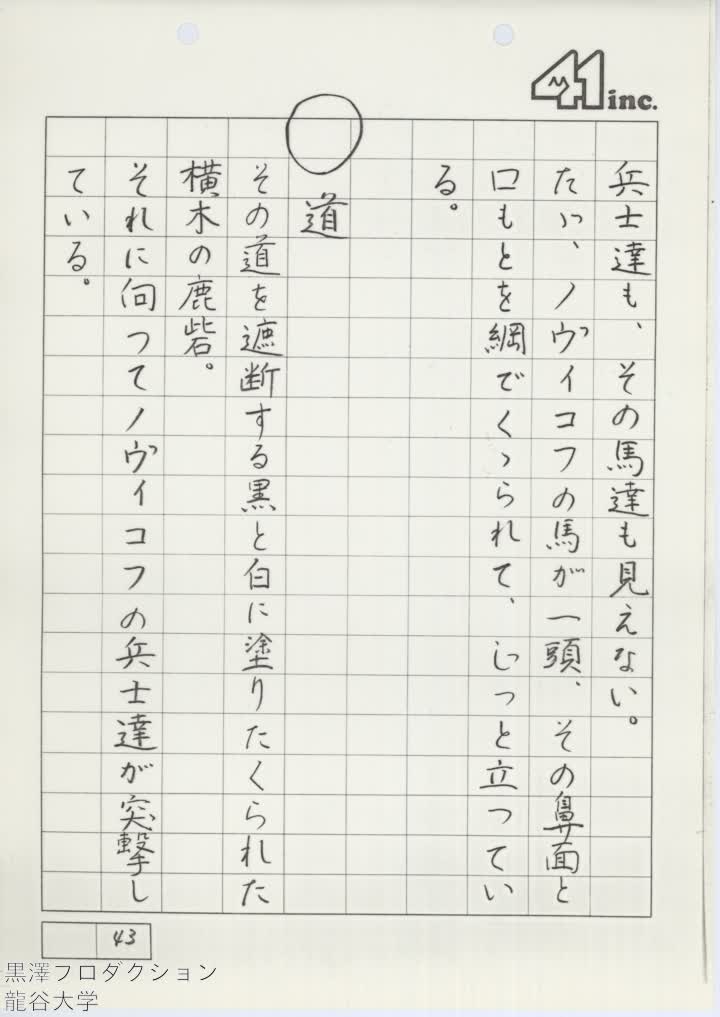 41 inc.
兵士達も、その馬達も見えない。
たゞ、ノヴイコフの馬が一頭、その鼻面と
口もとを綱でくゝられて、じっと立つてい
る。
○
道
その道を遮断する黒と白に塗りたくられた
横木の鹿砦。
それに向つてノヴイコフの兵士達が突撃し
ている。
43
黒澤プロダクション
龍谷大学